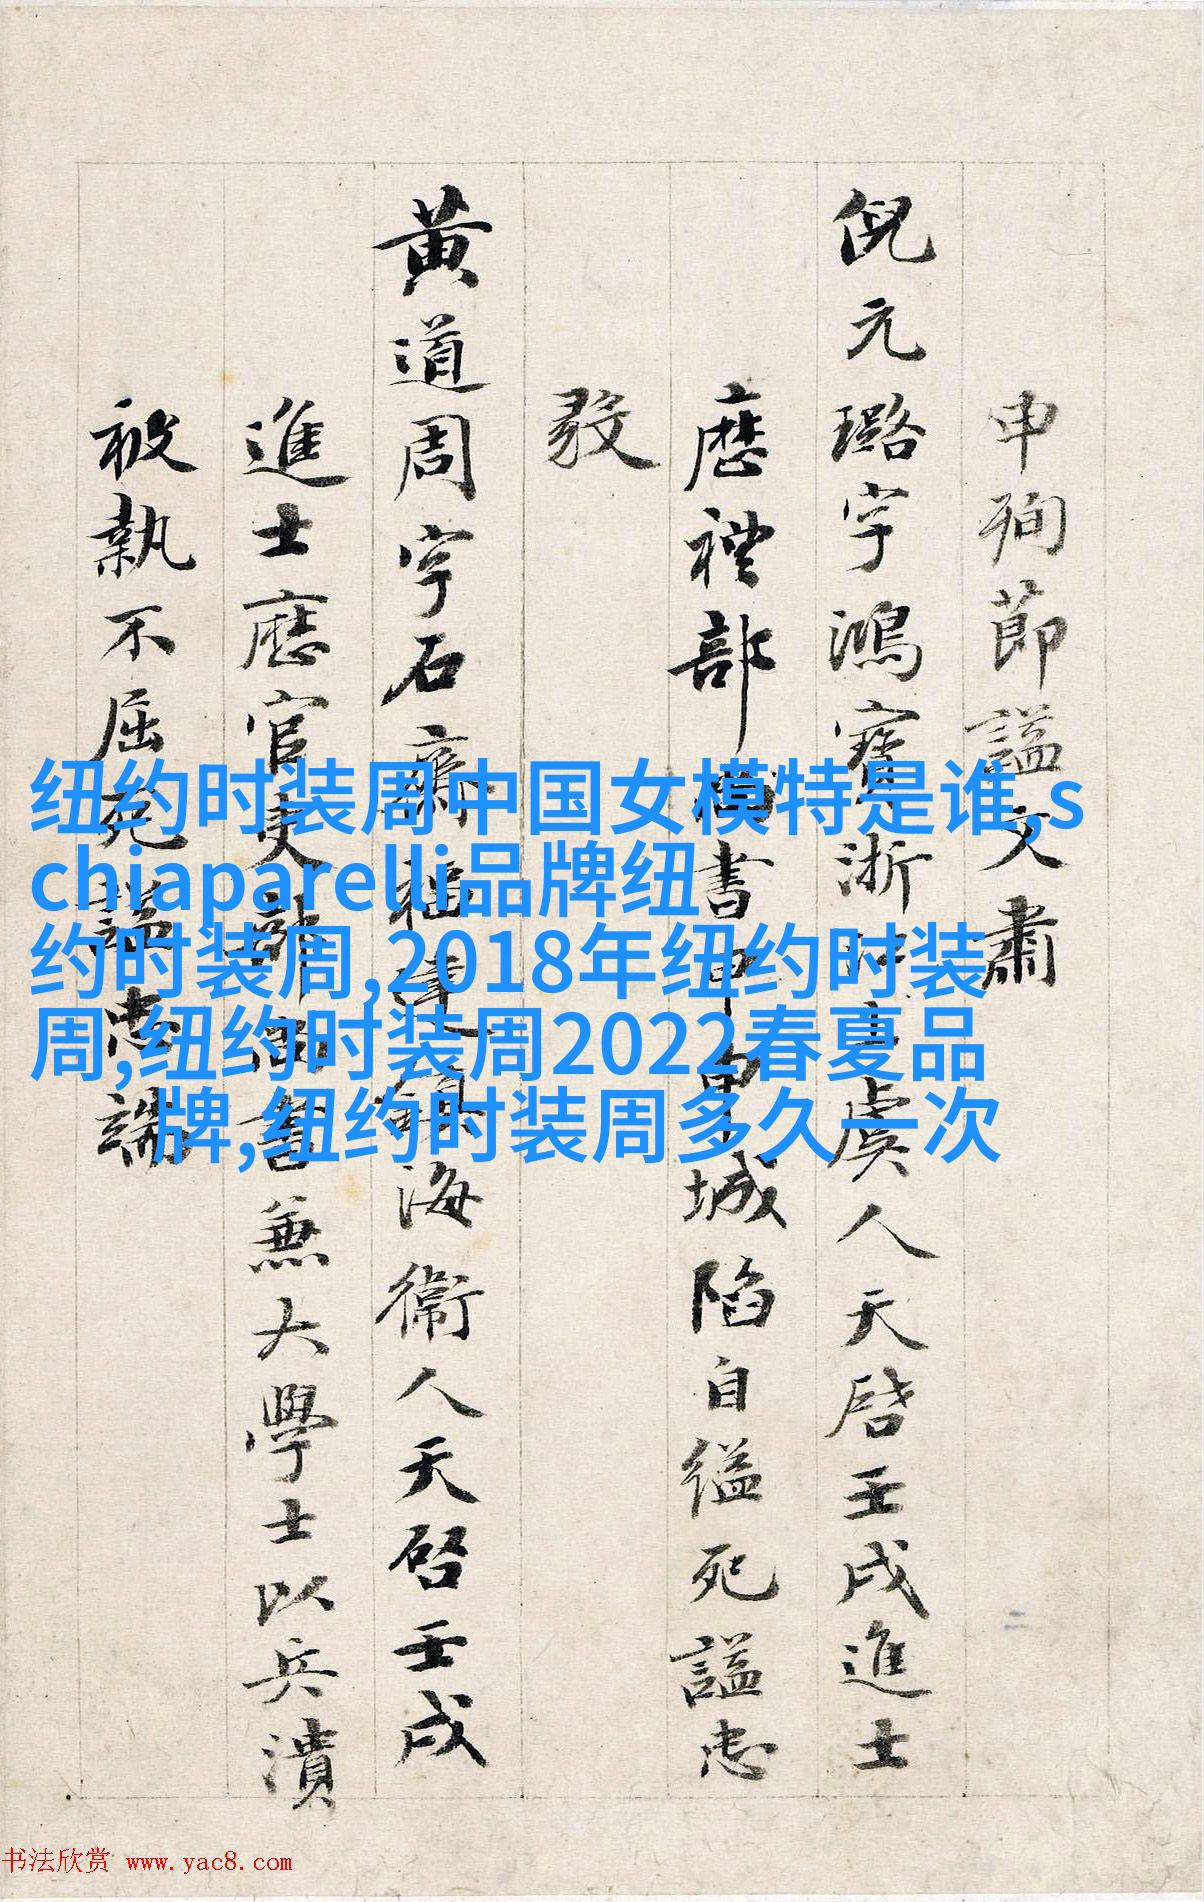 申殉節謚文肅
倪元璐字鴻寶浙江上虞人天啓壬戌進士
歷禮部尚書甲申皇城陷自縊死謚忠
毅
黃道周字石齋福建鎮海衞人天啓壬戌
進士歷官吏部尚書兼大學士以兵潰
被執不屈死謚忠端
纽约时装周中国女模特是谁,s
chiaparelli品牌纽
约时装周,2018年纽约时装
周,纽约时装周2022春夏品
牌,纽约时装周多久一次
书法欣赏 www.yac8.com